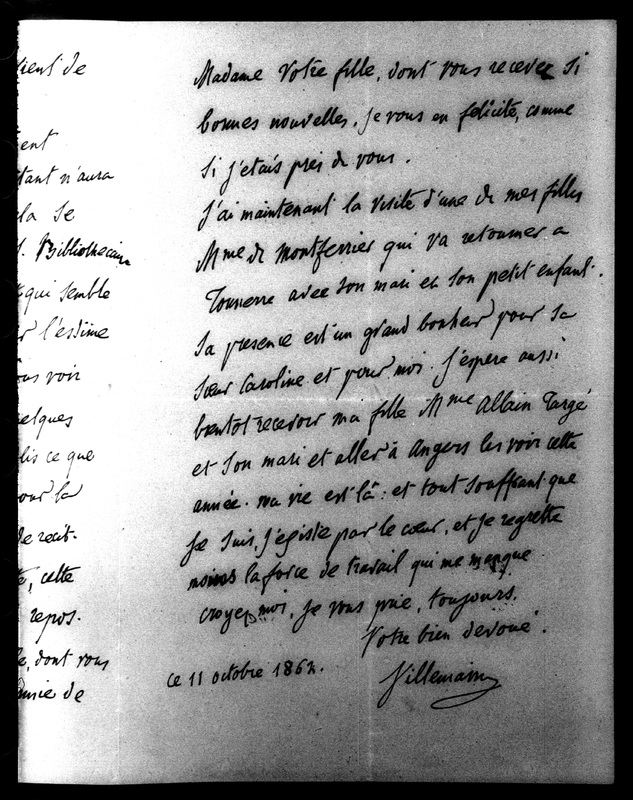 tient de
ent
tant n'aura
la se
Bibliothecaire
qui semble
l'estime
voir
elques
lis ce que
pour la
de recit.
cette
repos.
dont vous
de
Madame Votre fille, dont vous recevez Si
bonnes nouvelles. je vous en felicite, comme
Si j'etais près de vous.
J'ai maintenant la visite d'une de mes filles
Mme de Montferrier qui va retourner a
Tonnerre avec son mari et son petit enfant.
Sa presence est un grand bonheur pour sa
sœur Caroline et pour moi. J'espere aussi
bientot recevoir ma fille Mme Allain Targé
et son mari et aller à Angers les voir cette
année. ma vie est là: et tout souffrant que
je suis, j'existe par le cœur, et je regrette
moins la force de travail qui me manque
croyez moi, je vous prie, toujours.
Votre bien devoué.
ce 11 octobre 1862.
Villemain